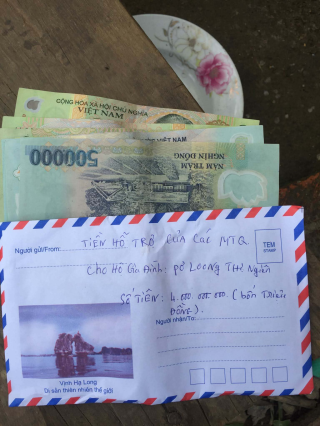 CỘNG HÒA XÃ HỘI CHỦ NGHĨA
VIỆT NAM
VIỆT NAM
500000
NĂM TRĂM
NGHÌN ĐỒNG
Người gửi/From:
TIỀN HỖ TRỢ CỦA CÁC MTQ
TEM
STAMP
Cho Hộ Gia Đình:
LOONG THỊ
SỐ TIỀN: 4.000.000.000. (bốn Triệu
ĐỒNG).
Người nhận/To:
Vịnh Hạ Long
Di sản thiên nhiên thế giới